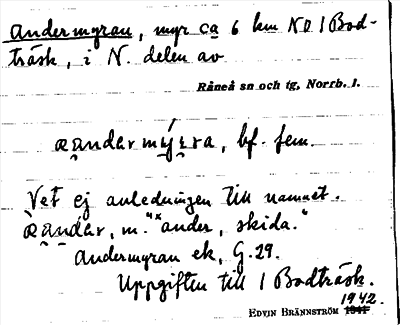 Andermyran, myr ca 6 km NO I Bod-
träsk, i N. delen av
Råneå sn och tg, Norrb. l.
bf. fem.
Vet ej anledningen till namnet.
m. "ander, skida."
Andermyran ek, G. 29.
Uppgiften till I Bodträsk.
1942.
EDVIN BRÄNNSTRÖM 1941